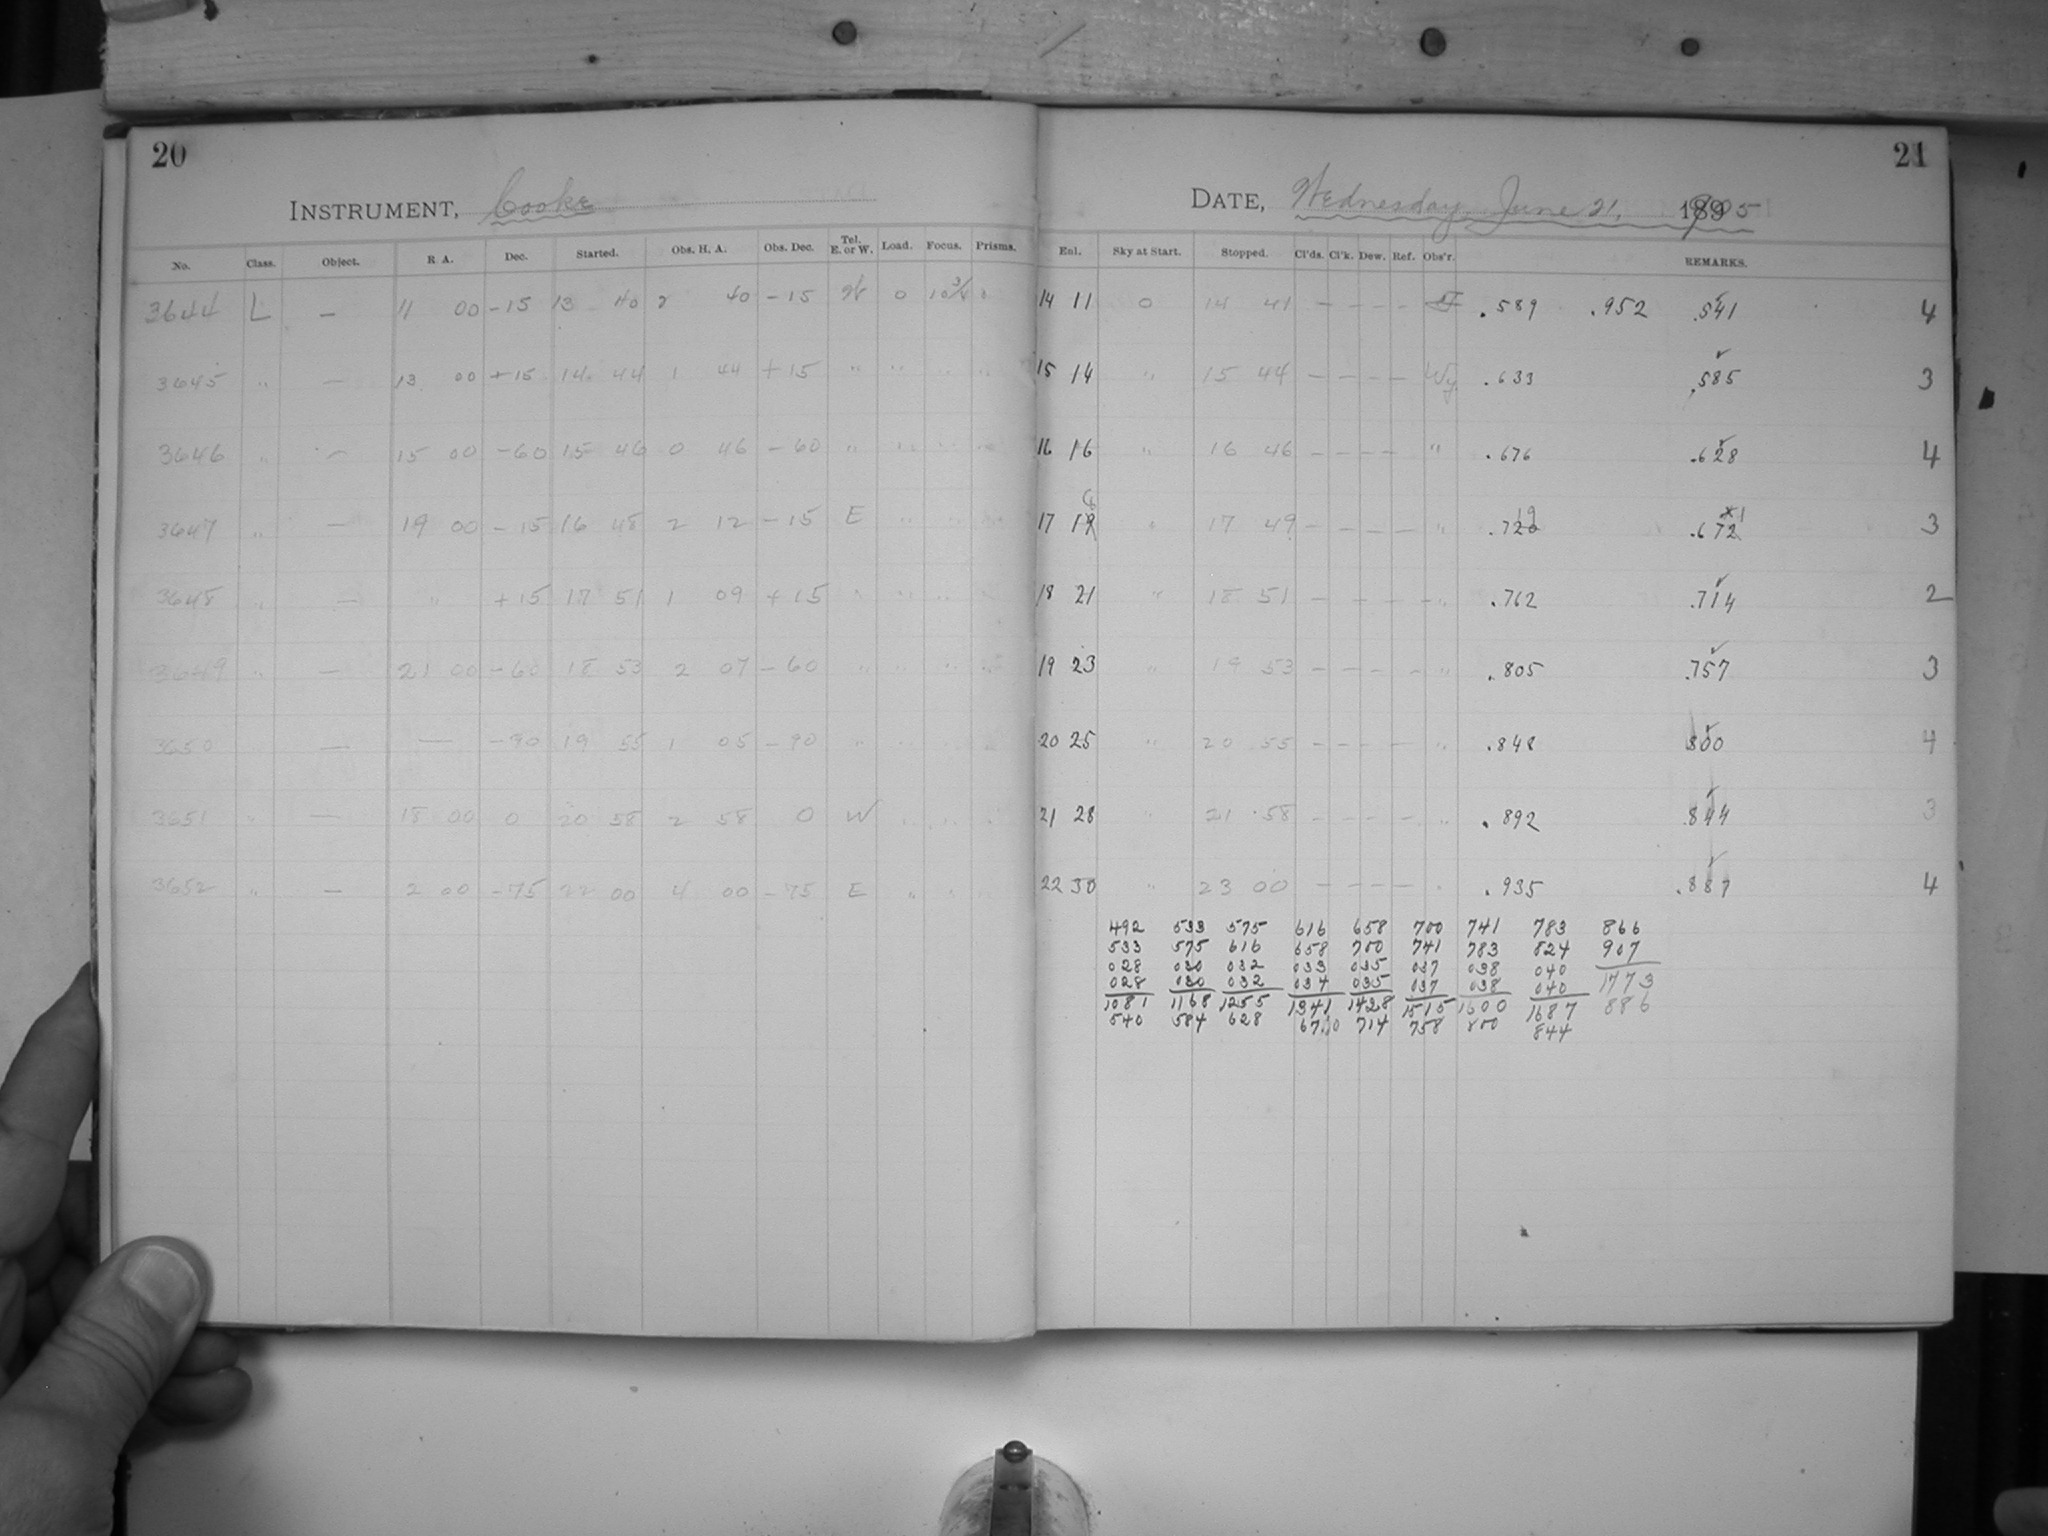 20
21
INSTRUMENT, Cooke
DATE, Wednesday, June 21, 1905
No. Class. Object. R. A. Dec. Started. Obs. H. A. Obs. Dec. Tel. E. or W. Load. Focus. Prisms. Enl. Sky at Start. Stopped. Cl'ds. Cl'k. Dew. Ref. Obs'r. REMARKS.
3644 L — 11 00 -15 13 40 2 40 -15 W 0 10 3/4 0 14 11 0 14 41 — — — — .589 .952 .541 4
3645 " — 13 00 +15 14 44 1 44 +15 " " " " 15 14 " 15 44 — — — — Wy .633 .585 3
3646 " — 15 00 -60 15 46 0 46 -60 " " " " 16 16 " 16 46 — — — — " .676 .628 4
3647 " — 19 00 -15 16 48 2 12 -15 E " " " 17 19 " 17 49 — — — — " .720 19 .672 1 3
3648 " — " +15 17 51 1 09 +15 " " " " 18 21 " 18 51 — — — — " .762 .714 2
3649 " — 21 00 -60 18 53 2 07 -60 " " " " 19 23 " 19 53 — — — — " .805 .757 3
3650 — — -90 19 55 1 05 -90 " " " " 20 25 " 20 55 — — — — " .848 .800 4
3651 " — 18 00 0 20 58 2 58 0 W " " " 21 28 " 21 58 — — — — " .892 .844 3
3652 " — 2 00 -75 22 00 4 00 -75 E " " " 22 30 " 23 00 — — — — " .935 .887 4
492 533 575 616 658 700 741 783 866
533 575 616 658 700 741 783 824 907
028 030 032 033 035 037 038 040 1773
028 030 032 034 035 037 038 040 886
1081 1168 1255 1341 1428 1515 1600 1687
540 584 628 670 714 758 800 844